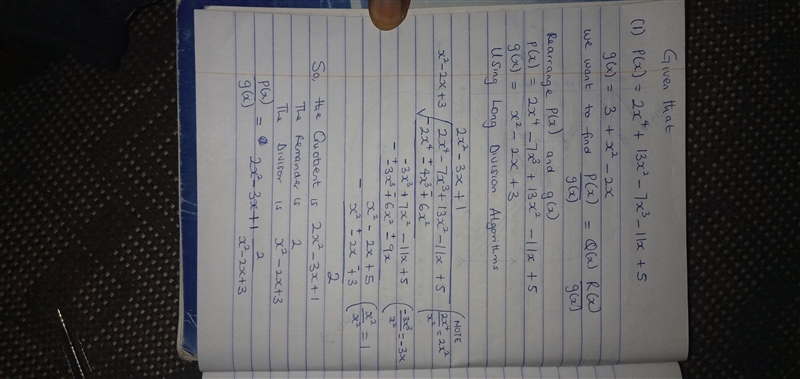 Given that
(1) P(x) = 2x⁴ + 13x² - 7x³ - 11x + 5
g(x) = 3 + x² - 2x
We want to find P(x)/g(x) = Q(x) R(x)/g(x)
Rearrange P(x) and g(x)
P(x) = 2x⁴ - 7x³ + 13x² - 11x + 5
g(x) = x² - 2x + 3
Using Long Division Algorithms
2x² - 3x + 1
x² - 2x + 3 √ 2x⁴ - 7x³ + 13x² - 11x + 5 (NOTE 2x⁴/x² = 2x²
- 2x⁴ ± 4x³ ± 6x²
-3x³ + 7x² - 11x + 5 (-3x³/x² = -3x
- ± 3x³ ± 6x² ± 9x
x² - 2x + 5 (x²/x² = 1
- x² ± 2x ± 3
2
So, the Quotient is 2x² - 3x + 1
The Remainder is 2
The Divisor is x² - 2x + 3
P(x)/g(x) = 2x² - 3x + 1 2/x² - 2x + 3